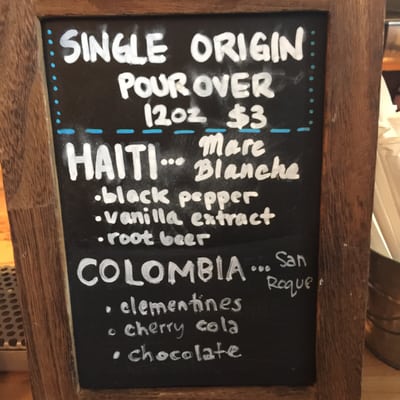 SINGLE ORIGIN
POUROVER
12oz $3
HAITI... Marc
Blanche
• black pepper
• vanilla extract
• root beer
COLOMBIA... San
Roque
• clementines
• cherry cola
• chocolate